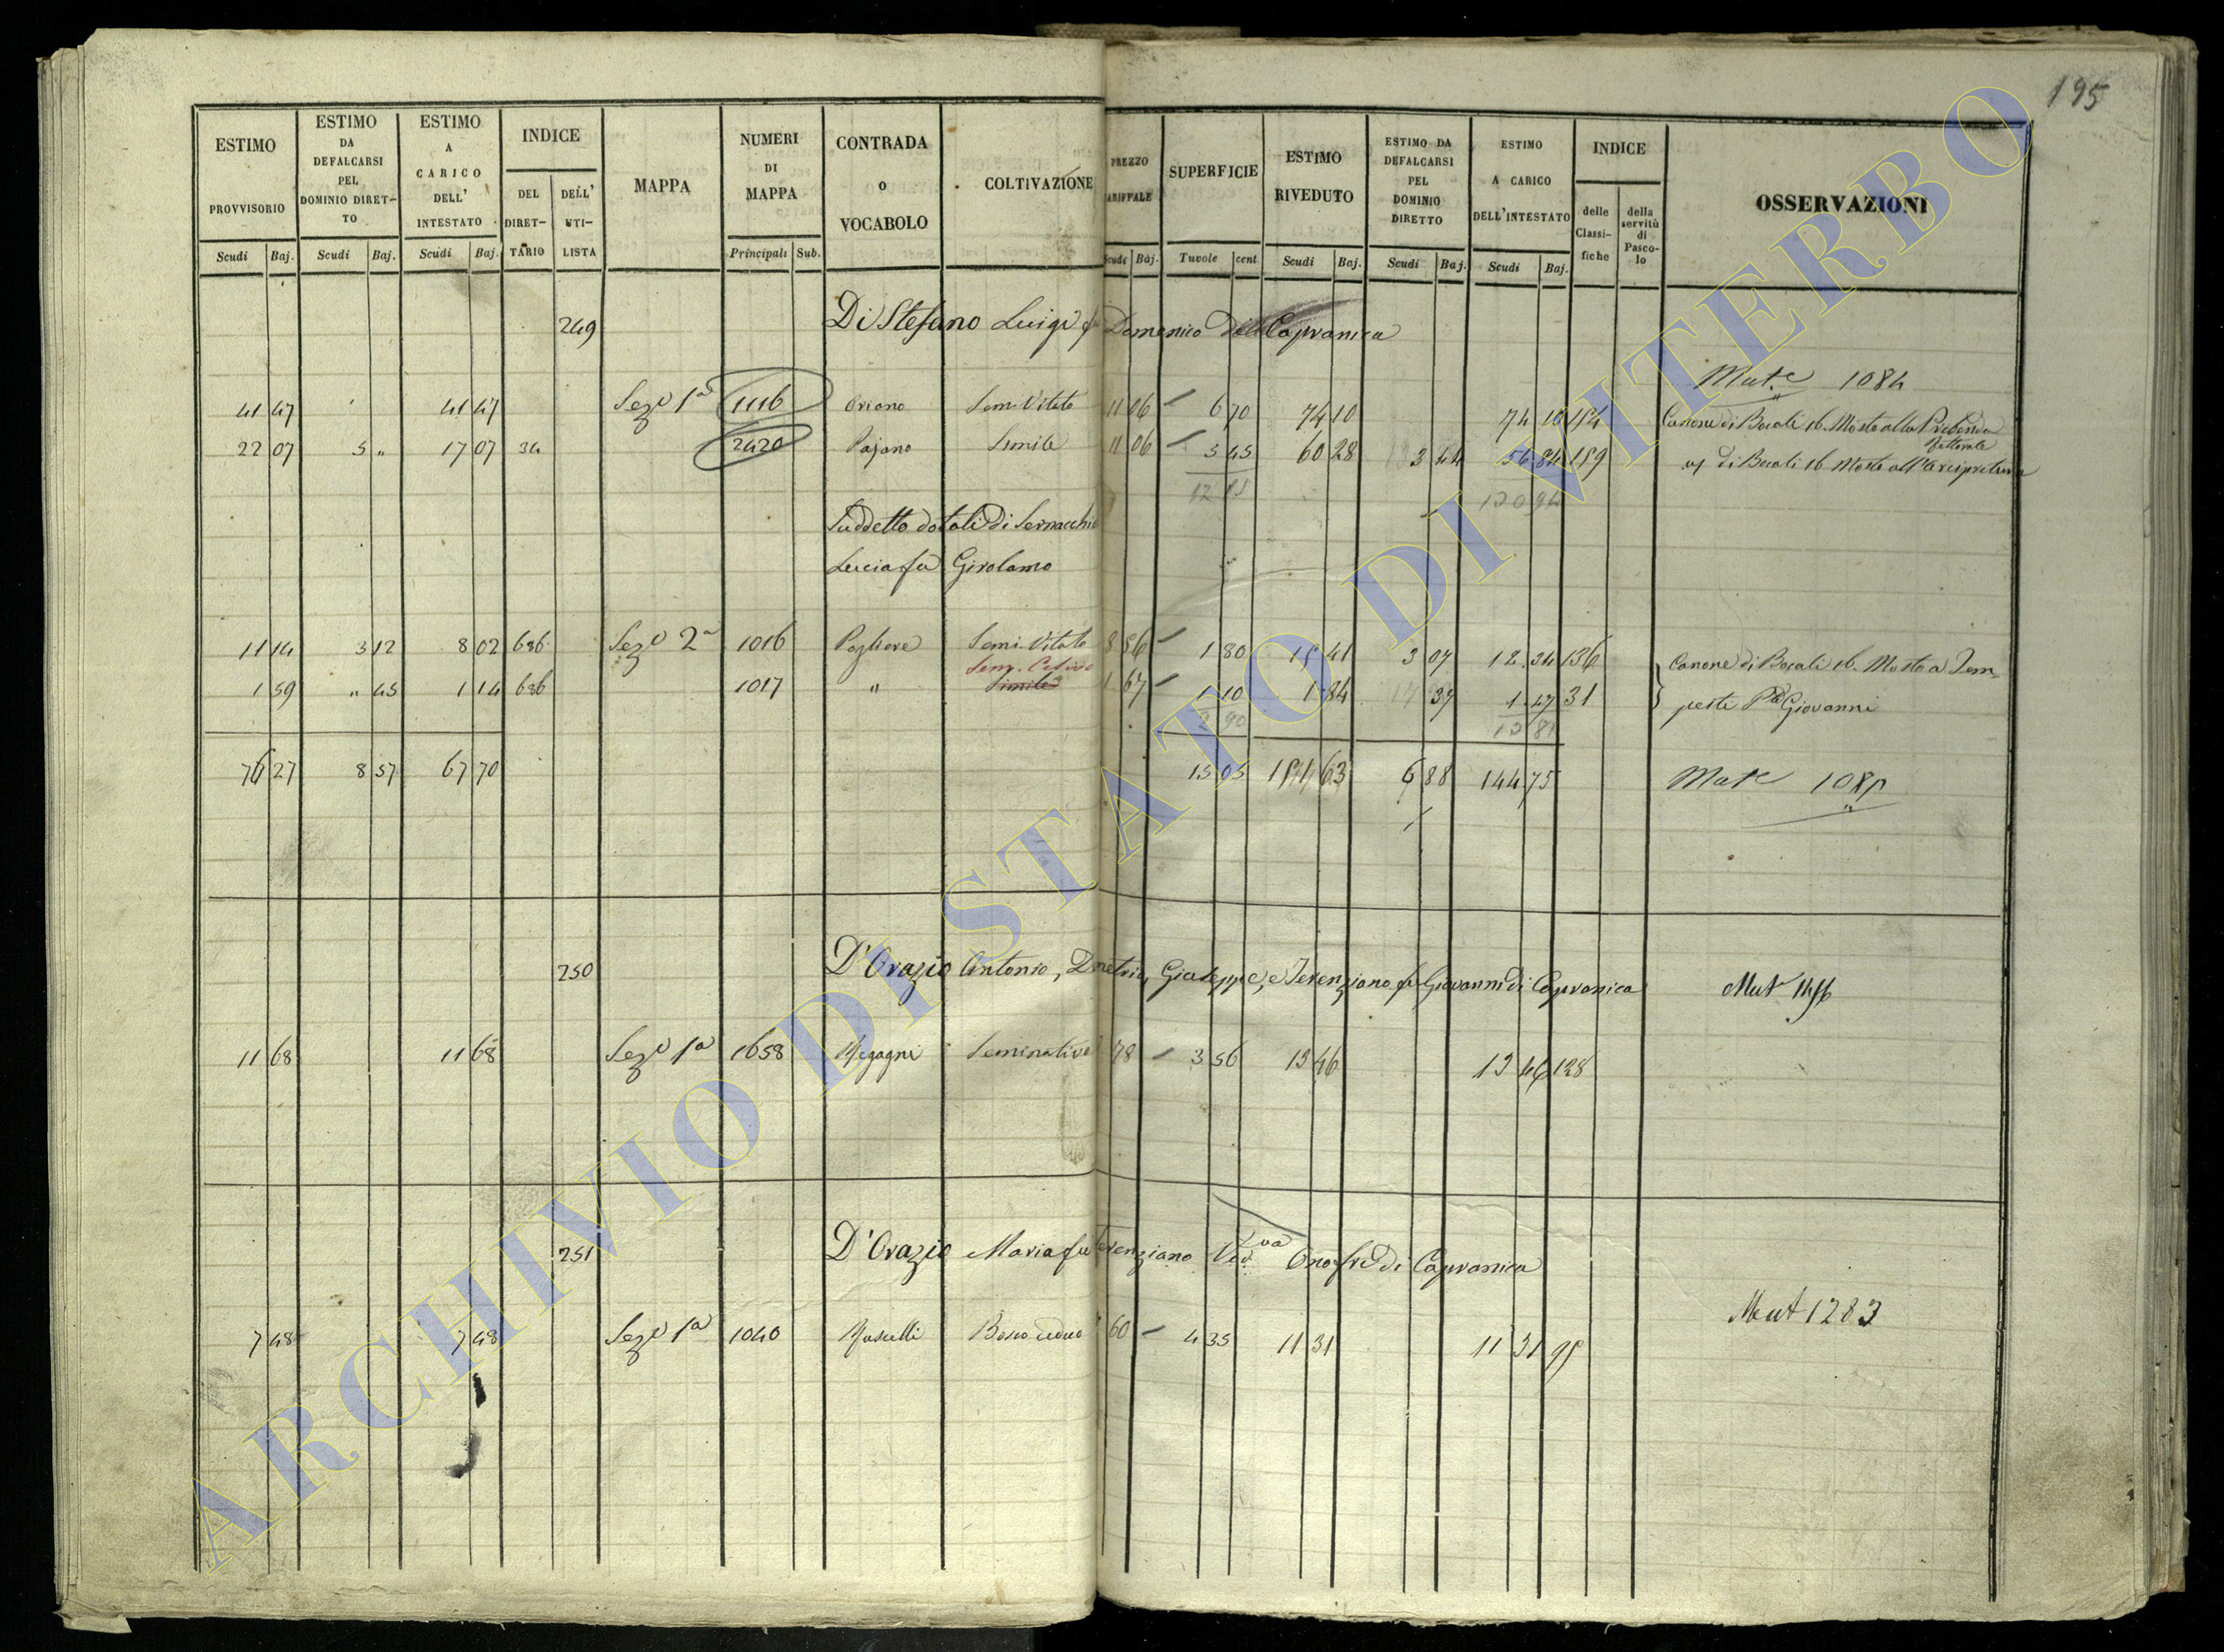 195
ESTIMO PROVVISORIO Scudi Baj.
ESTIMO DA DEFALCARSI PEL DOMINIO DIRETTO Scudi Baj.
ESTIMO A CARICO DELL' INTESTATO Scudi Baj.
INDICE DEL DIRETTARIO DELL' UTILISTA
MAPPA
NUMERI DI MAPPA Principali Sub.
CONTRADA O VOCABOLO
COLTIVAZIONE
PREZZO TARIFFALE Scudi Baj.
SUPERFICIE Tavole cent
ESTIMO RIVEDUTO Scudi Baj.
ESTIMO DA DEFALCARSI PEL DOMINIO DIRETTO Scudi Baj.
ESTIMO A CARICO DELL'INTESTATO Scudi Baj.
INDICE delle Classifiche della servitù di Pascolo
OSSERVAZIONI
249 Di Stefano Luigi fu Domenico di Capranica
Mut.e 1084
41 47 41 47 Sez.e 1a 1116 Oriano Sem. Vitato 11 06 6 70 74 10 74 10 Canone di Bocali 16. Mosto alla Prebenda
22 07 5 " 17 07 34 2420 Pajano Simile 11 06 5 45 60 28 3 44 56 84 159 di Bocali 16 Mosto all'Arcipretura
12 15 130 94
Suddetto dotali di Sernacchi
Lucia fu Girolamo
11 14 3 12 8 02 686 Sez.e 2a 1016 Pogliere Semi. Vitato 8 56 1 80 15 41 3 07 12 34 136 Canone di Bocali 16. Mosto a Tem-
Sem.
1 59 " 45 1 14 686 1017 " Simile 1 67 1 10 1 84 37 1 47 31 pesti Giovanni
2 90 13 81
76 27 8 57 67 70 15 05 151 63 6 88 144 75 Mut.e
250 D'Orazio Antonio, Demetrio, Giuseppe, e Terenziano fu Giovanni di Capranica Mut
11 68 11 68 Sez.e 1a 1658 Seminativo 78 3 56 13 46 13 46 128
251 D'Orazio Maria fu Terenziano Ved.va Onofri di Capranica
Mut 1283
7 48 7 48 Sez.e 1a 1040 Bosco ceduo 60 4 35 11 31 11 31 95
ARCHIVIO DI STATO DI VITERBO